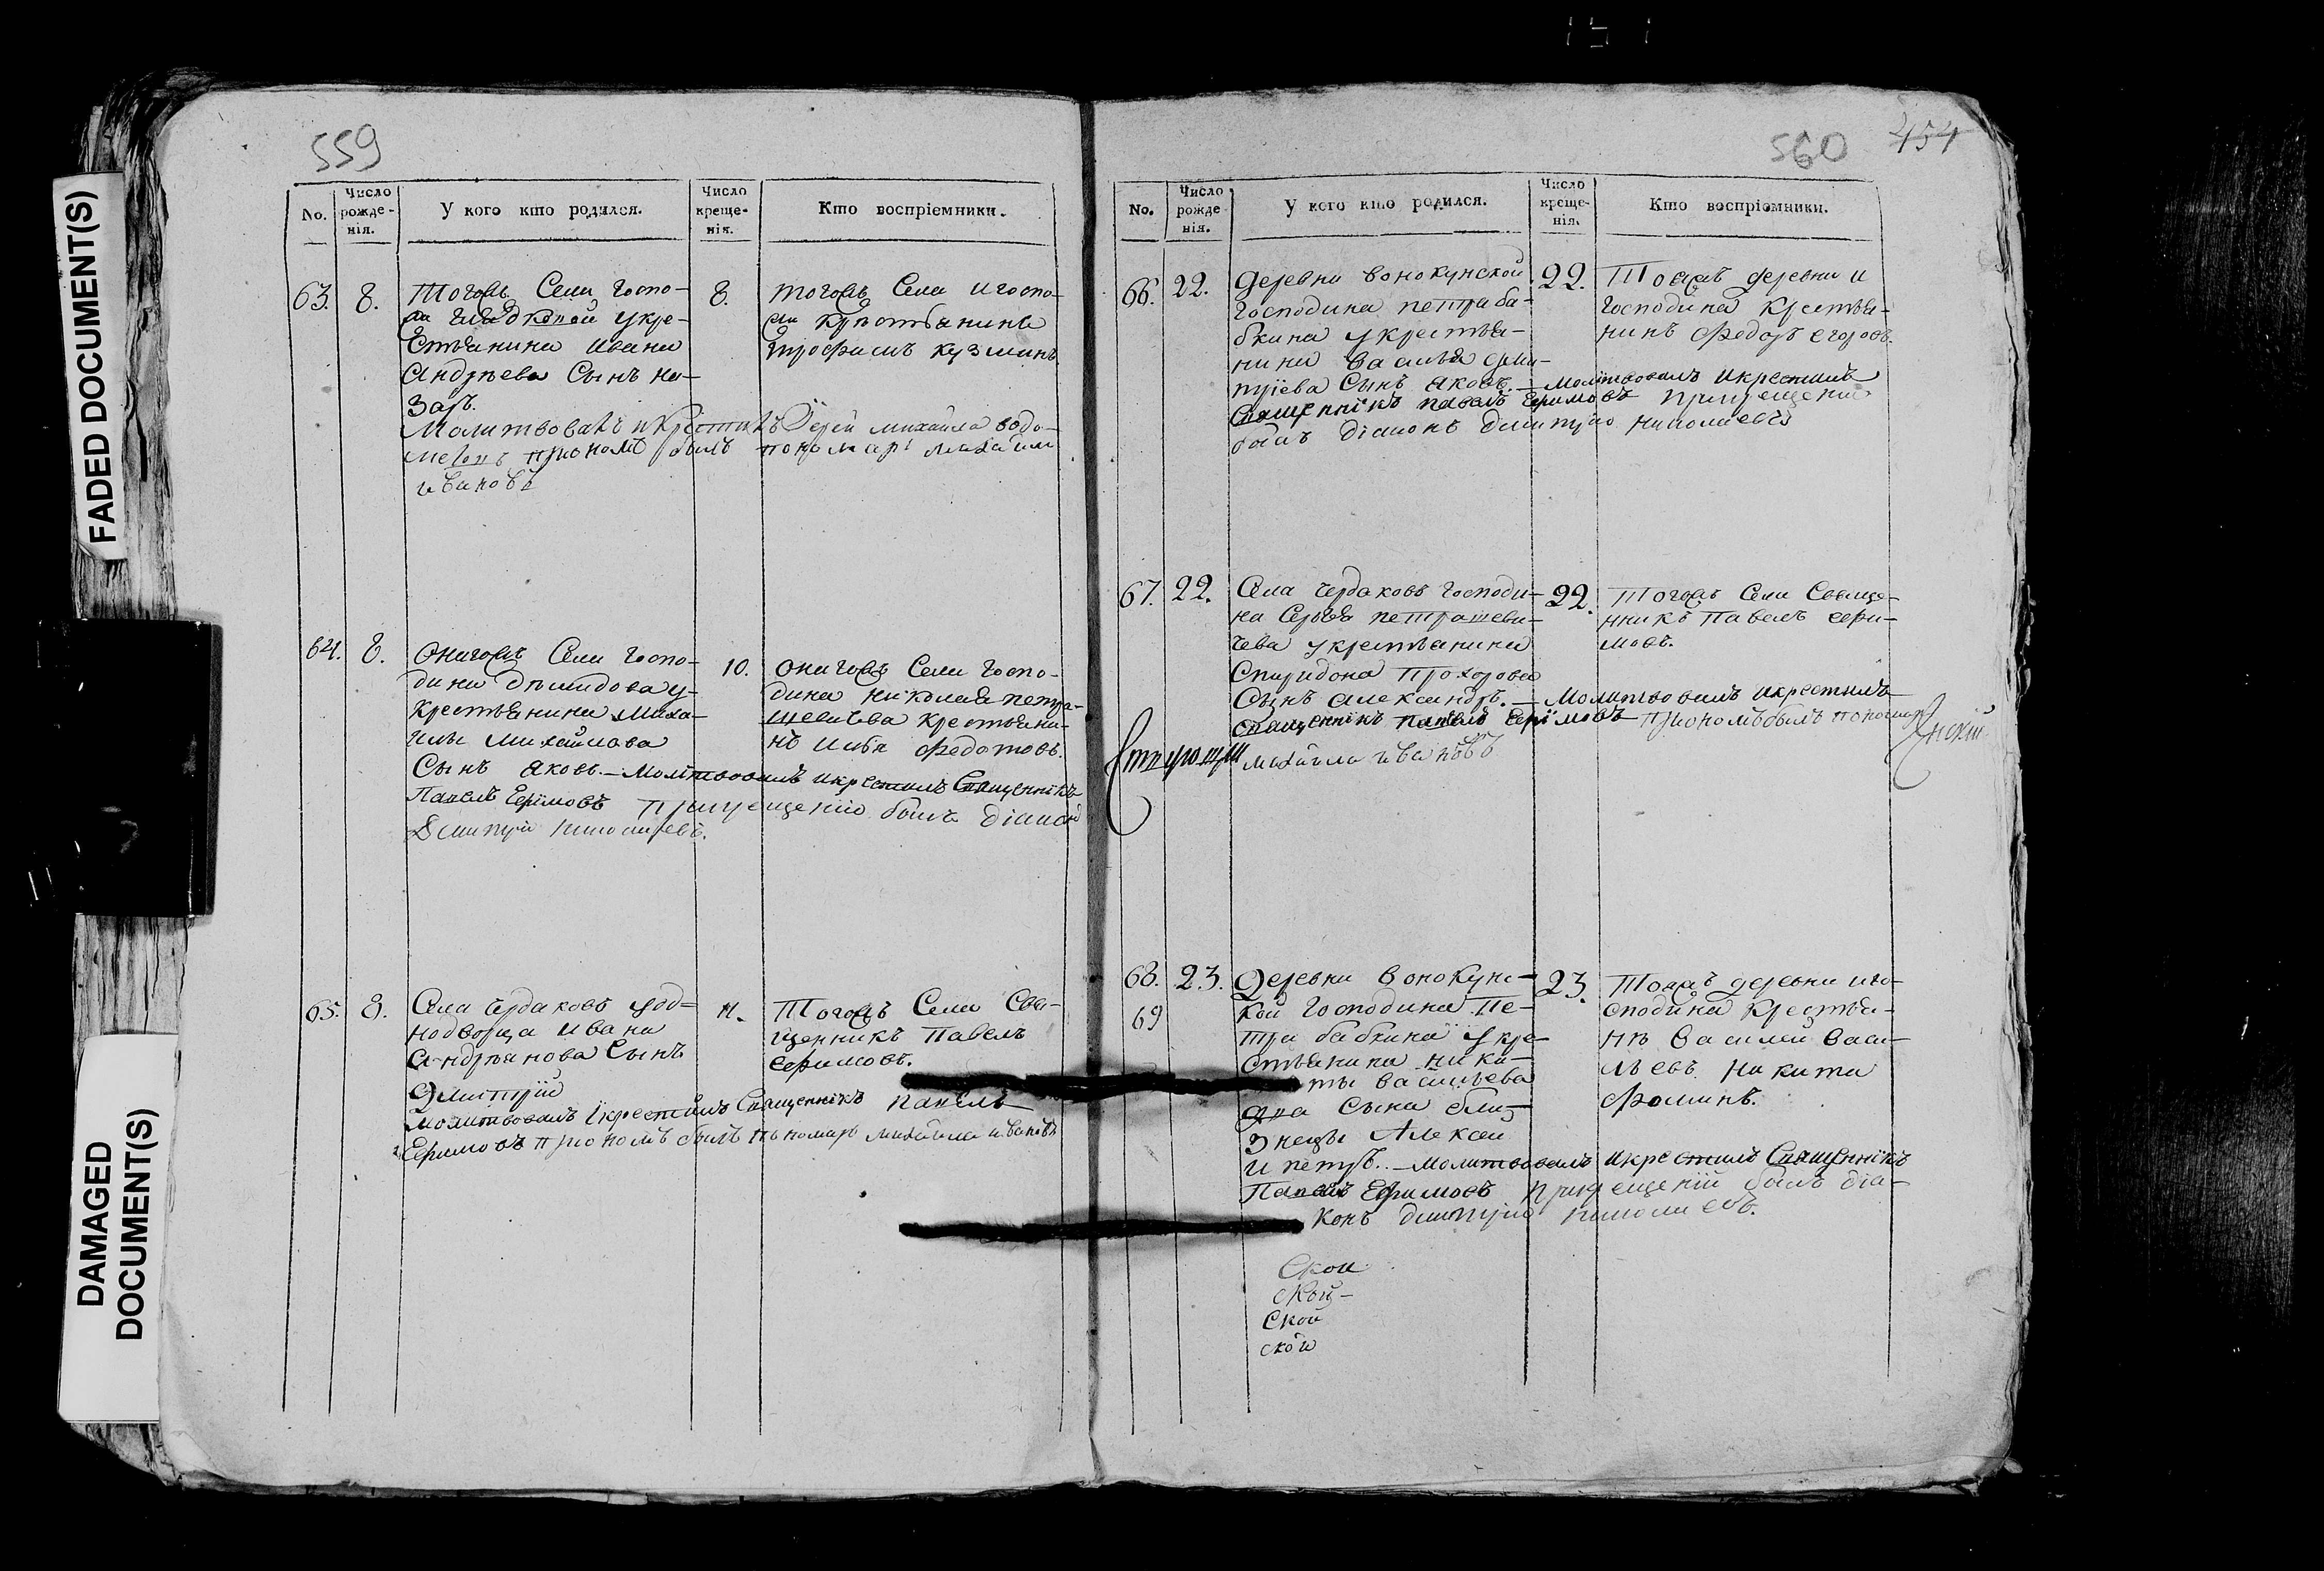 FADED DOCUMENT(S)
DAMAGED
DOCUMENT(S)
559
No.
Число рожденія.
У кого кто родился.
Число крещенія.
Кто воспріемники.
63. 8.
Тогожъ Села госпо-
жи укре-
стьянина Ивана
Андреева Сынъ На-
заръ.
8.
тогожъ Села игоспо-
жи крестьянинъ
Трофимъ Кузминъ
Молитвовалъ икрестилъ Іерей Михайла
приномъ былъ пономарь Михайла
Ивановъ
64. 8.
Оногожъ Села госпо-
дина Демидова у-
крестьянина Миха-
илы Михайлова
Сынъ Яковъ. — Молитвовалъ икрестилъ Священнікъ
Павелъ Ефімовъ прикрещеніи былъ діаконъ
Дмитрій Николаевъ.
10.
Оногожъ Села госпо-
дина Николая петра-
шевичева крестьяни-
нъ Илья Федотовъ.
65. 8.
Села Чердаковъ уод-
нодворца Ивана
Андреянова Сынъ
Дмитрій
11.
Тогожъ Села Свя-
щенникъ Павелъ
Ефимовъ.
Молитвовалъ Икрестилъ Священнікъ Павелъ
Ефимовъ приномъ былъ пономарь Михайла Ивановъ
560 454
No.
Число рожденія.
У кого кто родился.
Число крещенія.
Кто воспріемники.
66. 22.
Деревни Вонокунской
господина петра ба-
бкина укрестья-
нина Василья дми-
тріева Сынъ Яковъ. — Молитвовалъ Икрестилъ
Священнікъ Павелъ Ефимовъ прикрещеніи
былъ діаконъ Дмитрій Николаевъ
22.
Тояжъ деревни и
господина Крестья-
нинъ Федоръ Егоровъ.
67. 22.
Села Чердаковъ господи-
на Сергѣя петрашеви-
чева укрестьянина
Спиридона Прохорова
Сынъ Александръ. — Молитвовалъ икрестилъ
священнікъ Павелъ Ефімовъ приномъ былъ пономарь
Михайла Ивановъ
22.
Тогожъ Села Свяще-
нникъ Павелъ Ефи-
мовъ.
68. 23.
69
Деревни Вонокунс-
кой господина Пе-
тра бабкина укре-
стьянина Ники-
ты Васильева
два Сына бли-
знецы Алексей
И петръ. — Молитвовалъ икрестилъ Священнікъ
Павелъ Ефимовъ прикрещеніи былъ діа-
конъ Дмитрій Николаевъ.
23.
Тояжъ деревни иго-
сподина Крестья-
нѣ Василей Васи-
льевъ Никита
Фоминъ.
Ской
ской —
Ской
ской